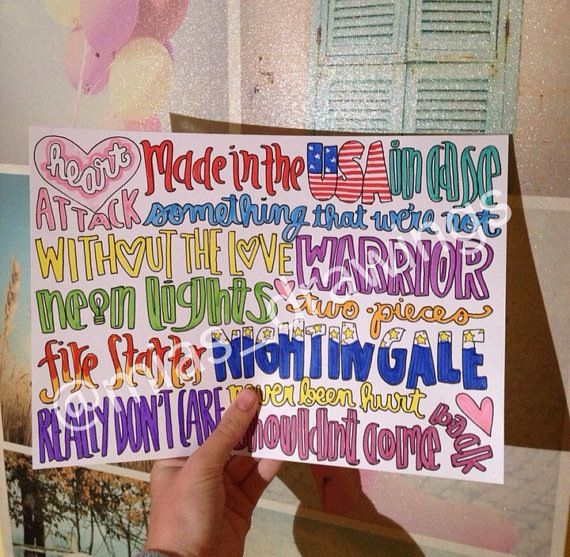 heart
ATTACK
Made in the USA in case
something that we're not
WITHOUT THE LOVE WARRIOR
neon lights two pieces
fire Starter NIGHTINGALE
REALLY DON'T CARE never been hurt
Shouldn't come back